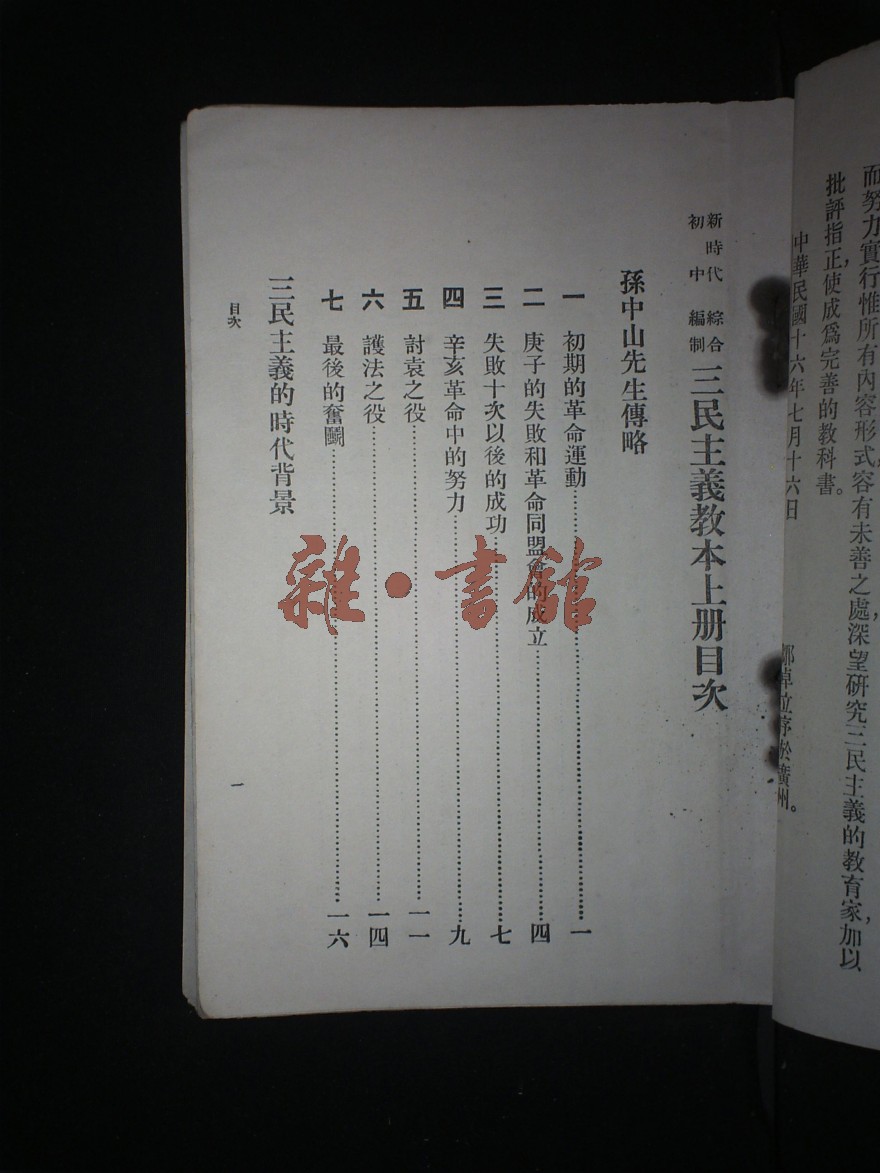 而努力實行惟所有內容形式容有未善之處,深望研究三民主義的教育家,加以
批評指正,使成爲完善的教科書。
中華民國十六年七月十六日
卓立序於廣州。
新時代 綜合
初中 編制
三民主義教本上册目次
孫中山先生傳略
一 初期的革命運動 一
二 庚子的失敗和革命同盟會的成立 四
三 失敗十次以後的成功 七
四 辛亥革命中的努力 九
五 討袁之役 一一
六 護法之役 一四
七 最後的奮鬭 一六
三民主義的時代背景
目次
一
雜·書館